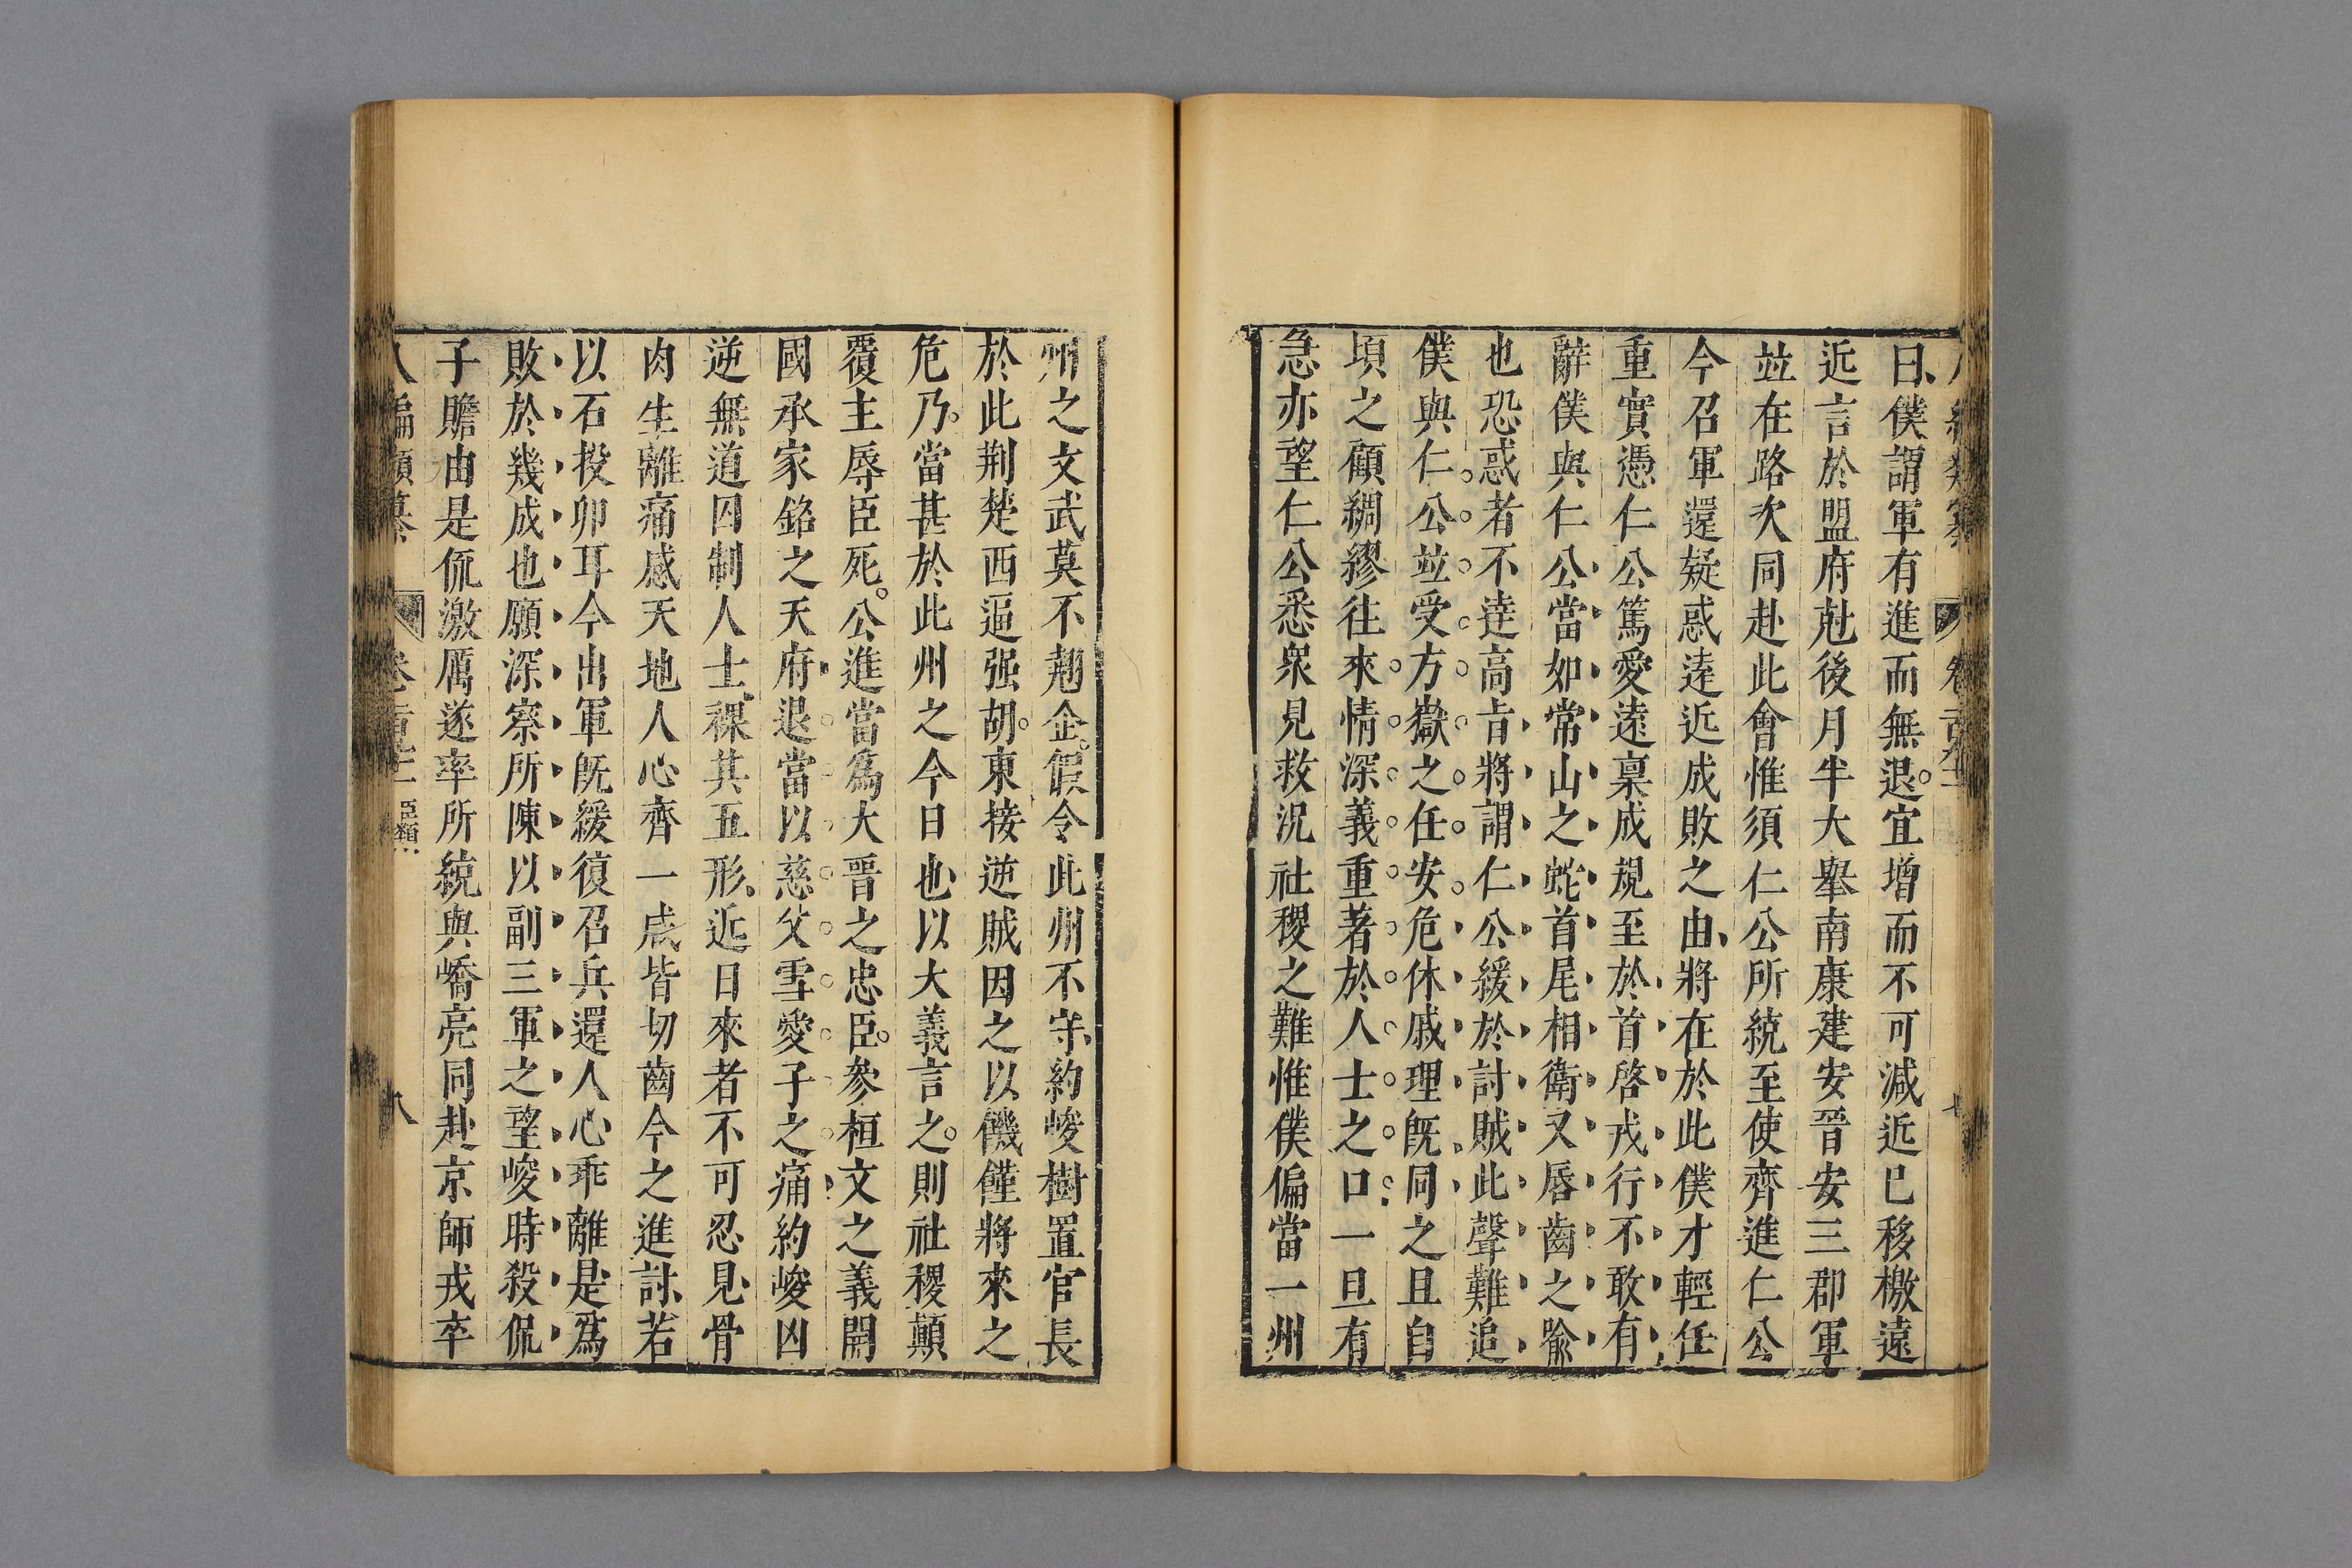 曰僕謂軍有進而無退宜增而不可減近已移檄遠
近言於盟府尅後月半大舉南康建安晉安三郡軍
並在路次同赴此會惟須仁公所統至使齊進仁公
今召軍還疑惑遠近成敗之由將在於此僕才輕任
重實憑仁公篤愛遠稟成規至於首啓戎行不敢有
辭僕與仁公當如常山之蛇首尾相衛又唇齒之喻
也恐惑者不達高旨將謂仁公緩於討賊此聲難追
僕與仁公並受方嶽之任安危休戚理旣同之且自
頃之顧綢繆往來情深義重著於人士之口一旦有
急亦望仁公悉衆見救況社稷之難惟僕偏當一州
州之文武莫不翹企假令此州不守約峻樹置官長
於此荆楚西逼强胡東接逆賊因之以饑饉將來之
危乃當甚於此州之今日也以大義言之則社稷顚
覆主辱臣死公進當爲大晉之忠臣參桓文之義開
國承家銘之天府退當以慈父雪愛子之痛約峻凶
逆無道囚制人士裸其五形近日來者不可忍見骨
肉生離痛感天地人心齊一咸皆切齒今之進討若
以石投卵耳今出軍旣緩復召兵還人心乖離是爲
敗於幾成也願深察所陳以副三軍之望峻時殺侃
子瞻由是侃激厲遂率所統與嶠亮同赴京師戎卒
八編類纂 臣類 八